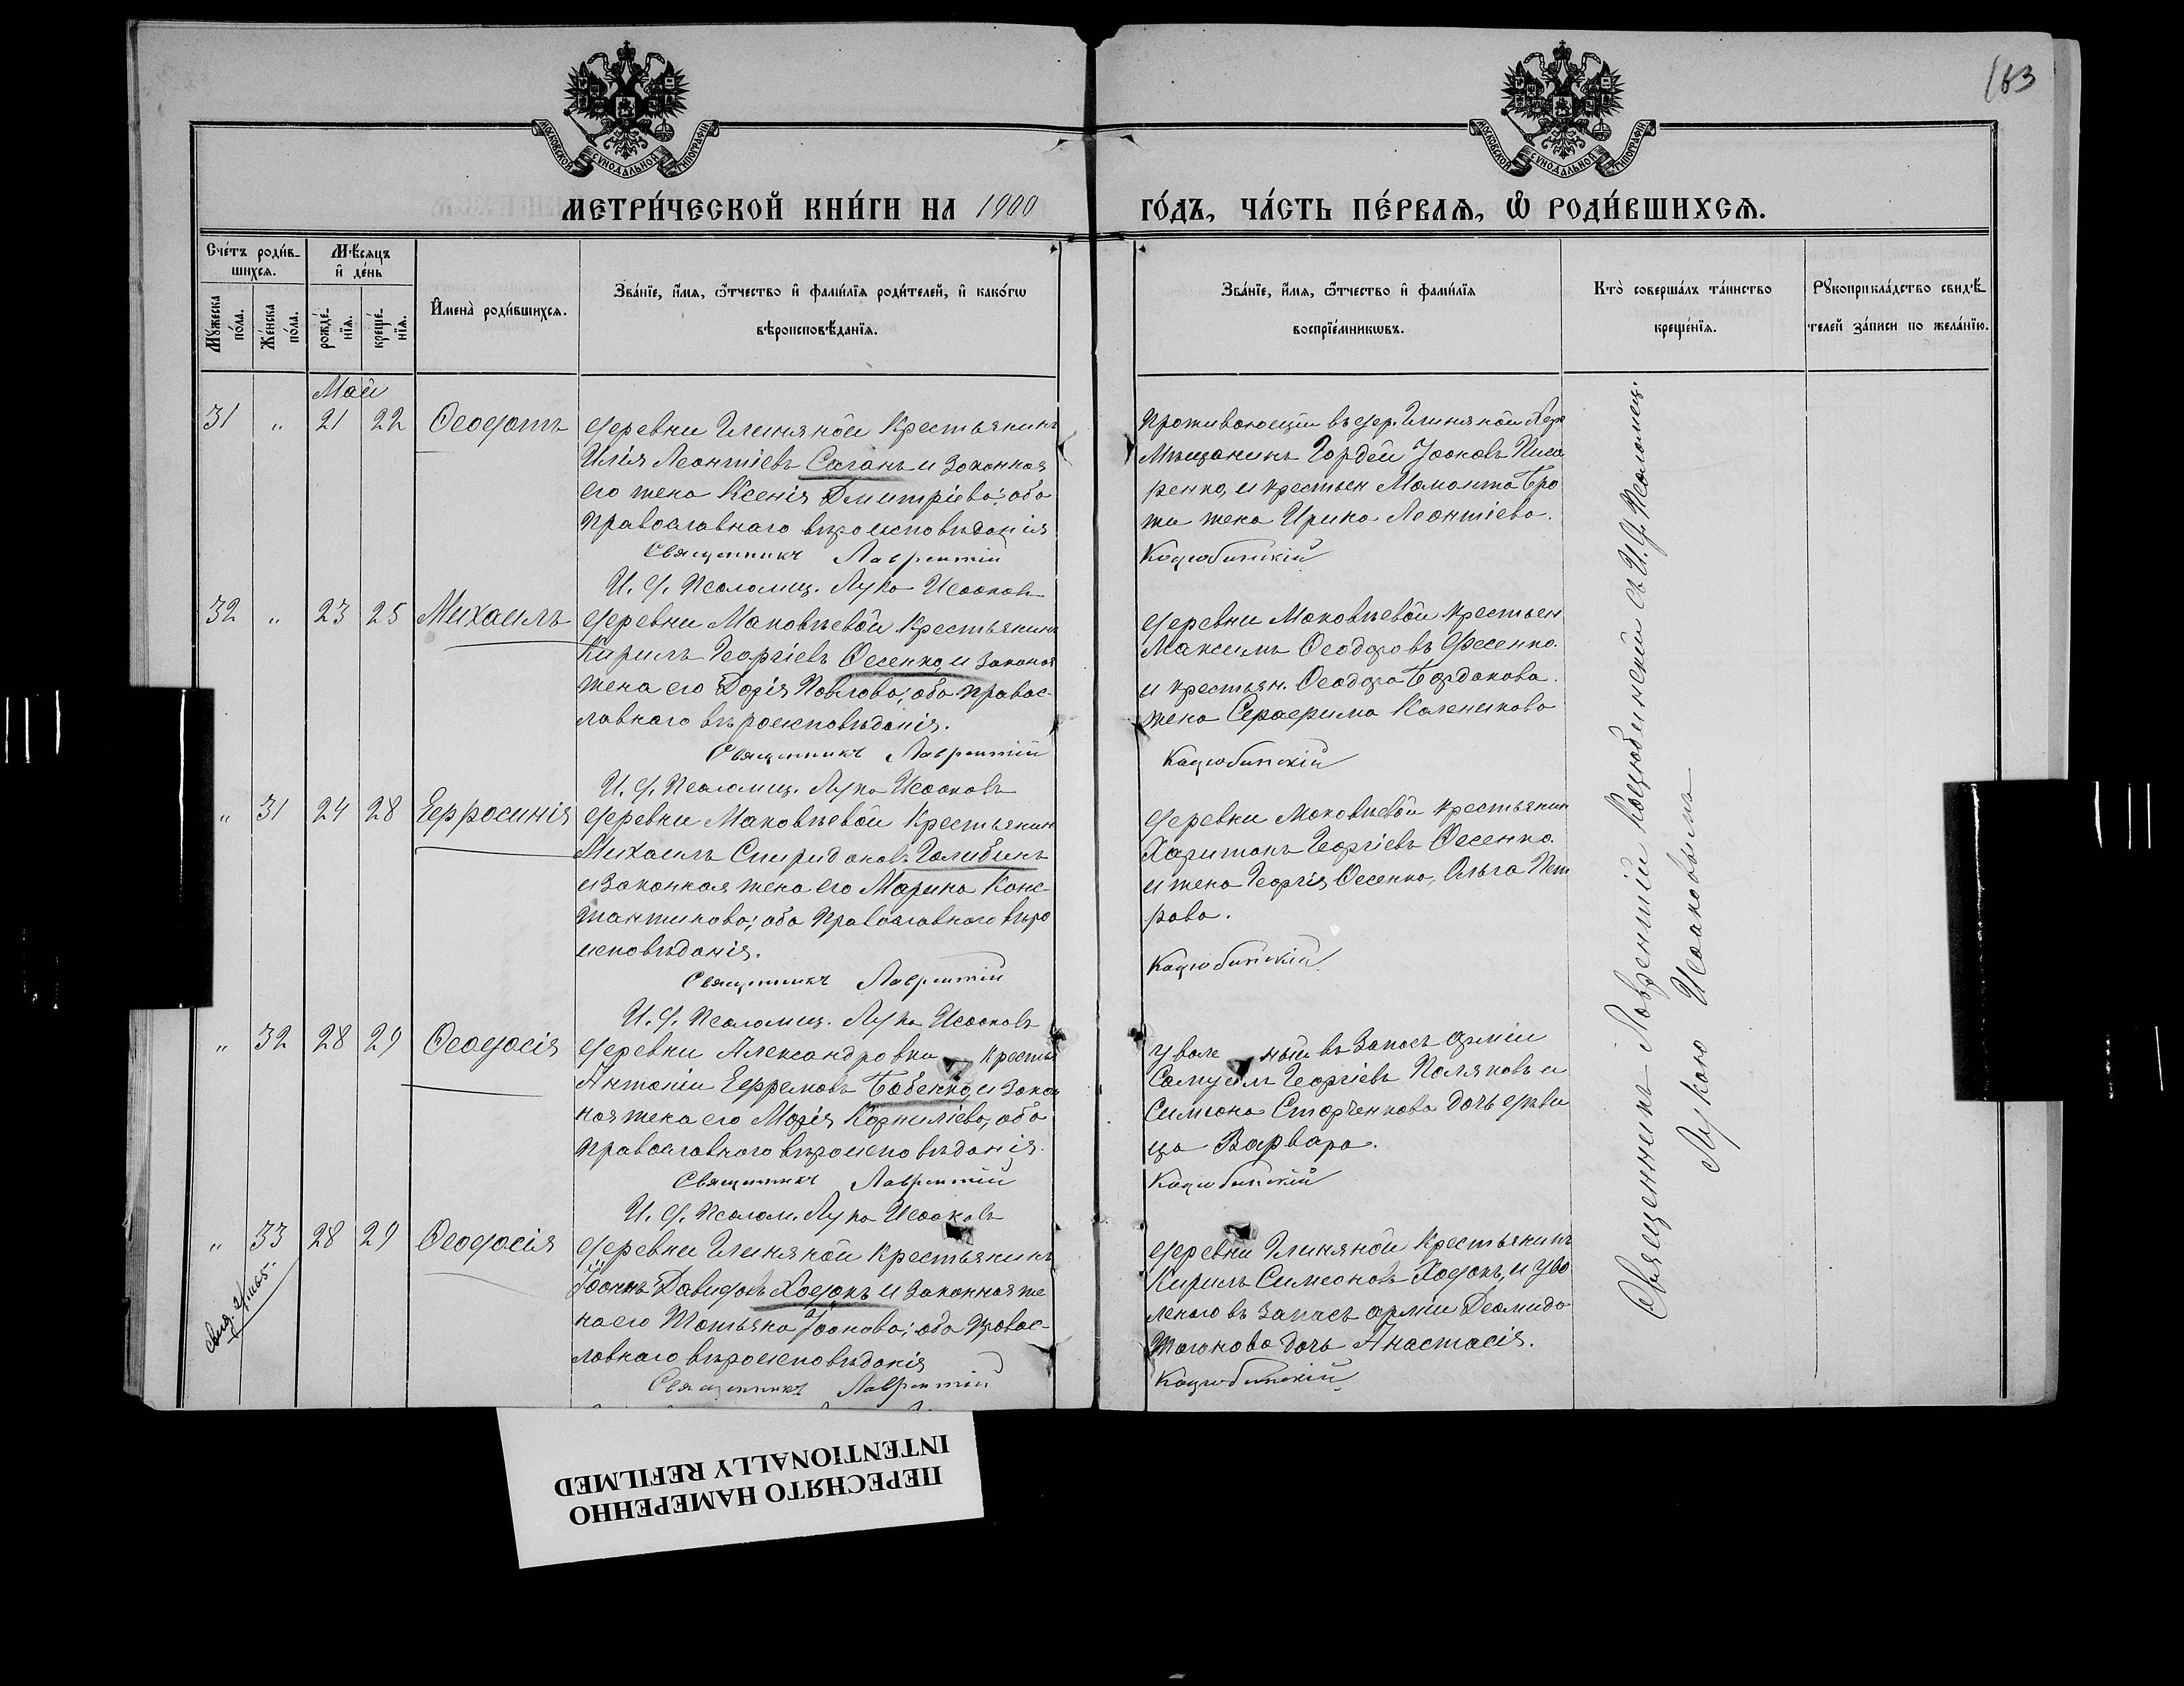 163
МОСКОВСКОЙ СУНОДАЛЬНОЙ ТИПОГРАФІИ
МОСКОВСКОЙ СУНОДАЛЬНОЙ ТИПОГРАФІИ
МЕТРИ́ЧЕСКОЙ КНИ́ГИ НА 1900 ГО́ДЪ, ЧА́СТЬ ПЕ́РВАѦ, Ѡ РОДИ́ВШИХСѦ.
Сче́тъ роди́в-
шихсѧ.
Мꙋ́жеска
по́ла.
Же́нска
по́ла.
Мѣ́сѧцъ
и҆ де́нь
рожде́-
нїѧ.
креще́-
нїѧ.
И҆мена̀ роди́вшихсѧ.
Зва́нїе, и҆́мѧ, ѻ҆́тчество и҆ фами́лїѧ роди́телей, и҆ како́гѡ
вѣроисповѣ́данїѧ.
Зва́нїе, и҆́мѧ, ѻ҆́тчество и҆ фами́лїѧ
воспрїе́мникѡвъ.
Кто̀ соверша́лъ та́инство
креще́нїѧ.
Рꙋкоприкла́дство свидѣ́-
телей за́писи по жела́нїю.
Май
31 " 21 22 Ѳеодотъ
деревни Глиняной Крестьянинъ
Илія Леонтіевъ Саганъ и законная
его жена Ксенія Дмитріева; оба
православнаго вѣроисповѣданія
Священникъ Лаврентій
И. д. Псаломщ. Лука Исааковъ
Проживающій въ дер. Глиняной
Мѣщанинъ Гордѣй Іоановъ Писа
ренко, и крестьян Мамонта Бро
жена Ирина Леонтіева.
Коцюбинскій
32 " 23 25 Михаилъ
деревни Маковѣевой Крестьянинъ
Кирилъ Георгіевъ Ѳесенко, и законая
жена его Дарія Павлова; оба правос-
лавнаго вѣроисповѣданія.
Священникъ Лаврентій
И. д. Псаломщ. Лука Исааковъ
деревни Маковѣевой крестьян
Максимъ Ѳеодоровъ Фесенко.
и крестьян. Ѳеодора Бардакова.
жена Серафима Каленикова
Коцюбинскій
" 31 24 28 Ефросинія
деревни Маковѣевой Крестьянин
Михаилъ Спиридоновъ Голибинъ
и законная жена его Марина Конс-
тантинова; оба православного вѣро
исповѣданія.
Священникъ Лаврентій
И. д. Псаломщ. Лука Исааковъ
деревни Маковѣевой крестьянин
Харитонъ Георгіевъ Ѳесенко.
и жена Георгія Ѳесенко, Ольга Пет
рова.
Коцюбинскій
" 32 28 29 Ѳеодосія
деревни Александровки кресть
Антоній Ефремовъ Бабенко, и закон
ная жена его Марія Корниліева, оба
православного вѣроисповѣданія.
Священникъ Лаврентій
И. д. Псалом. Лука Исааковъ
уволе ный въ запасъ арміи
Самуилъ Георгіевъ Поляковъ и
Симиона Старченкова дочь дѣви
ца Варвара.
Коцюбинскій
" 33 28 29 Ѳеодосія
деревни Глиняной крестьянинъ
Іоанъ Давидовъ Ходокъ и законная же
на его Татьяна Іоанова; оба правос-
лавнаго вѣроисповѣданія
Священникъ Лаврентій
деревни Глиняной Крестьянинъ
Кирилъ Симеоновъ Ходокъ, и уво
леного въ запасъ арміи Деомида
дочь Анастасія.
Коцюбинскій
Священникъ Лаврентій Коцюбинскій съ И. д. Псаломщ.
Лукою Исааковымъ
ПЕРЕСНЯТО НАМЕРЕННО
INTENTIONALLY REFILMED